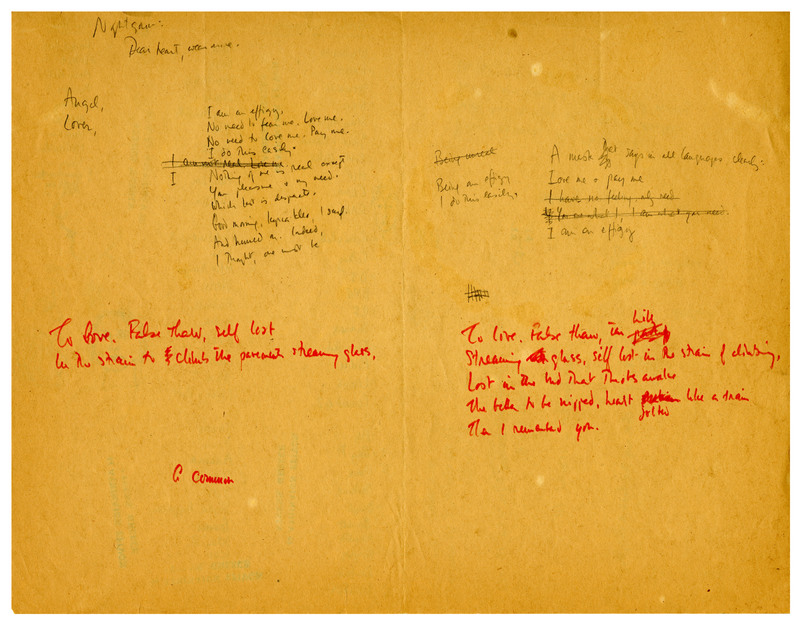 Dear heart,
Angel,
Lover,
I am an effigy.
No need to fear me. Love me.
No need to love me. Pay me.
I do this easily.
I am not real. Love me.
I Nothing of me is real except
Your pleasure + my need.
Which last is desperate.
Good morning, I said.
And me. Indeed,
I thought, one must be
Being
Being an effigy
I do this easily.
A mask that says in all languages clearly:
Love me + pay me
I have no feeling only need
You are what I, I am what you need.
I am an effigy
To love. False thaw, self lost
In the strain to climb the pavements streaming glass,
C common
To love. False thaw, the hill
Streaming glass, self lost in the strain of climbing,
Lost in the bud that thinks awake
The better to be nipped, heart jolted like a train
Then I remembered you.